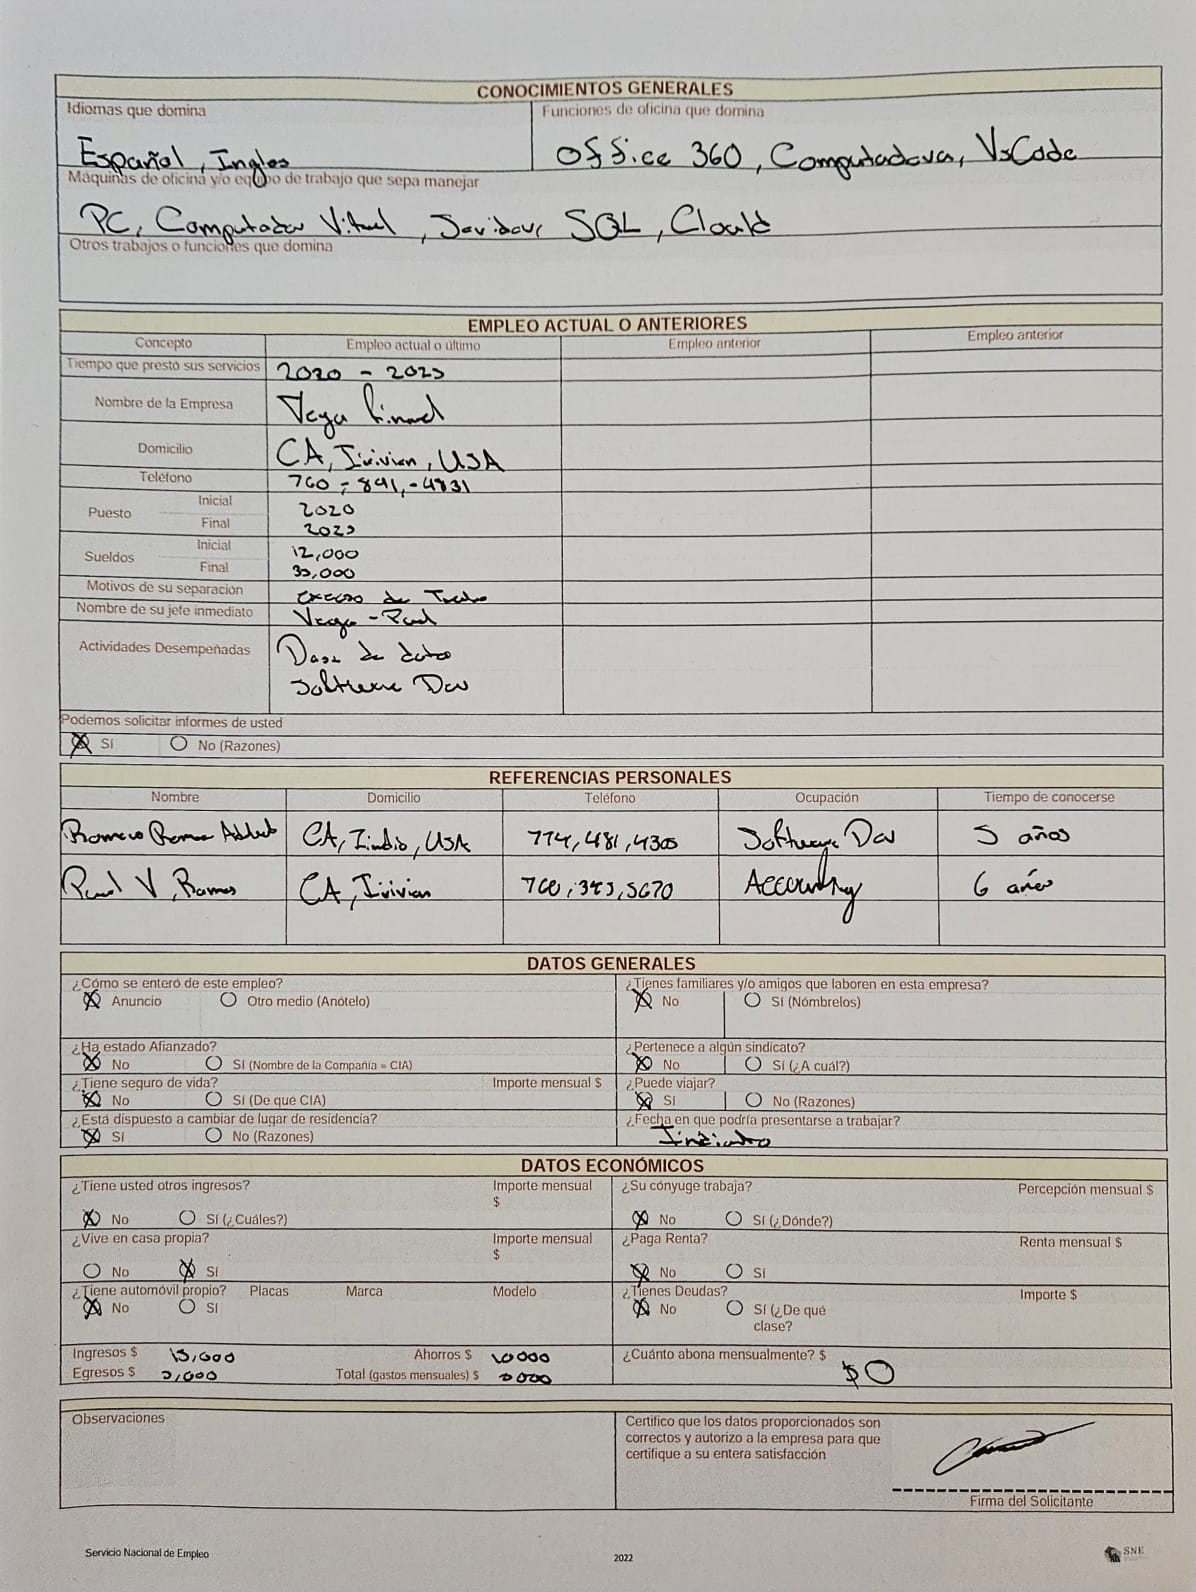 CONOCIMIENTOS GENERALES
Idiomas que domina
Funciones de oficina que domina
Español, Ingles
Office 360, Computadora, VsCode
Máquinas de oficina y/o equipo de trabajo que sepa manejar
PC, Computador SQL,
Otros trabajos o funciones que domina
EMPLEO ACTUAL O ANTERIORES
Concepto Empleo actual o último Empleo anterior Empleo anterior
Tiempo que prestó sus servicios 2020 - 2023
Nombre de la Empresa Vega
Domicilio CA, USA
Teléfono 760 - 891 - 4831
Puesto Inicial 2020
Final 2023
Sueldos Inicial 12,000
Final
Motivos de su separación exceso de
Nombre de su jefe inmediato Vega - Paul
Actividades Desempeñadas Base de datos
Software Dev
Podemos solicitar informes de usted
Sí No (Razones)
REFERENCIAS PERSONALES
Nombre Domicilio Teléfono Ocupación Tiempo de conocerse
Romero CA, Indio, USA 774, 481, 4305 Software Dev 5 años
Paul V, Ramos CA, Accounting 6 años
DATOS GENERALES
¿Cómo se enteró de este empleo?
Anuncio Otro medio (Anótelo)
¿Tienes familiares y/o amigos que laboren en esta empresa?
No Sí (Nómbrelos)
¿Ha estado Afianzado?
No Sí (Nombre de la Compañía = CIA)
¿Pertenece a algún sindicato?
No Sí (¿A cuál?)
¿Tiene seguro de vida? Importe mensual $
No Sí (De qué CIA)
¿Puede viajar?
Sí No (Razones)
¿Está dispuesto a cambiar de lugar de residencia?
Sí No (Razones)
¿Fecha en que podría presentarse a trabajar?
DATOS ECONÓMICOS
¿Tiene usted otros ingresos? Importe mensual $
No Sí (¿Cuáles?)
¿Su cónyuge trabaja? Percepción mensual $
No Sí (¿Dónde?)
¿Vive en casa propia? Importe mensual $
No Sí
¿Paga Renta? Renta mensual $
No Sí
¿Tiene automóvil propio? Placas Marca Modelo
No Sí
¿Tienes Deudas? Importe $
No Sí (¿De qué
clase?
Ingresos $ 15,000 Ahorros $ 10000
Egresos $ Total (gastos mensuales) $
¿Cuánto abona mensualmente? $ $0
Observaciones
Certifico que los datos proporcionados son
correctos y autorizo a la empresa para que
certifique a su entera satisfacción
Firma del Solicitante
Servicio Nacional de Empleo
2022
SNE